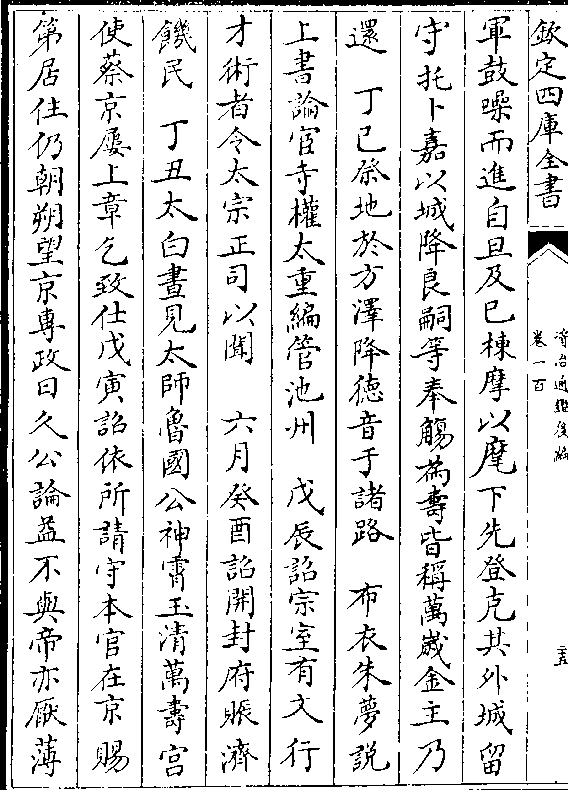 欽定四庫全書
資治通鑑後編
卷一百
二十五
軍鼓噪而進自旦及巳棟摩以麾下先登克其外城留
守托卜嘉以城降良嗣等奉觴為壽皆稱萬歲金主乃
還　丁巳祭地於方澤降德音于諸路　布衣朱夢説
上書論宦寺權太重編管池州　戊辰詔宗室有文行
才術者令太宗正司以聞　六月癸酉詔開封府賑濟
饑民　丁丑太白晝見太師魯國公神霄玉清萬壽宫
使蔡京屢上章乞致仕戊寅詔依所請守本官在京賜
第居住仍朝朔望京專政日久公論益不與帝亦厭薄